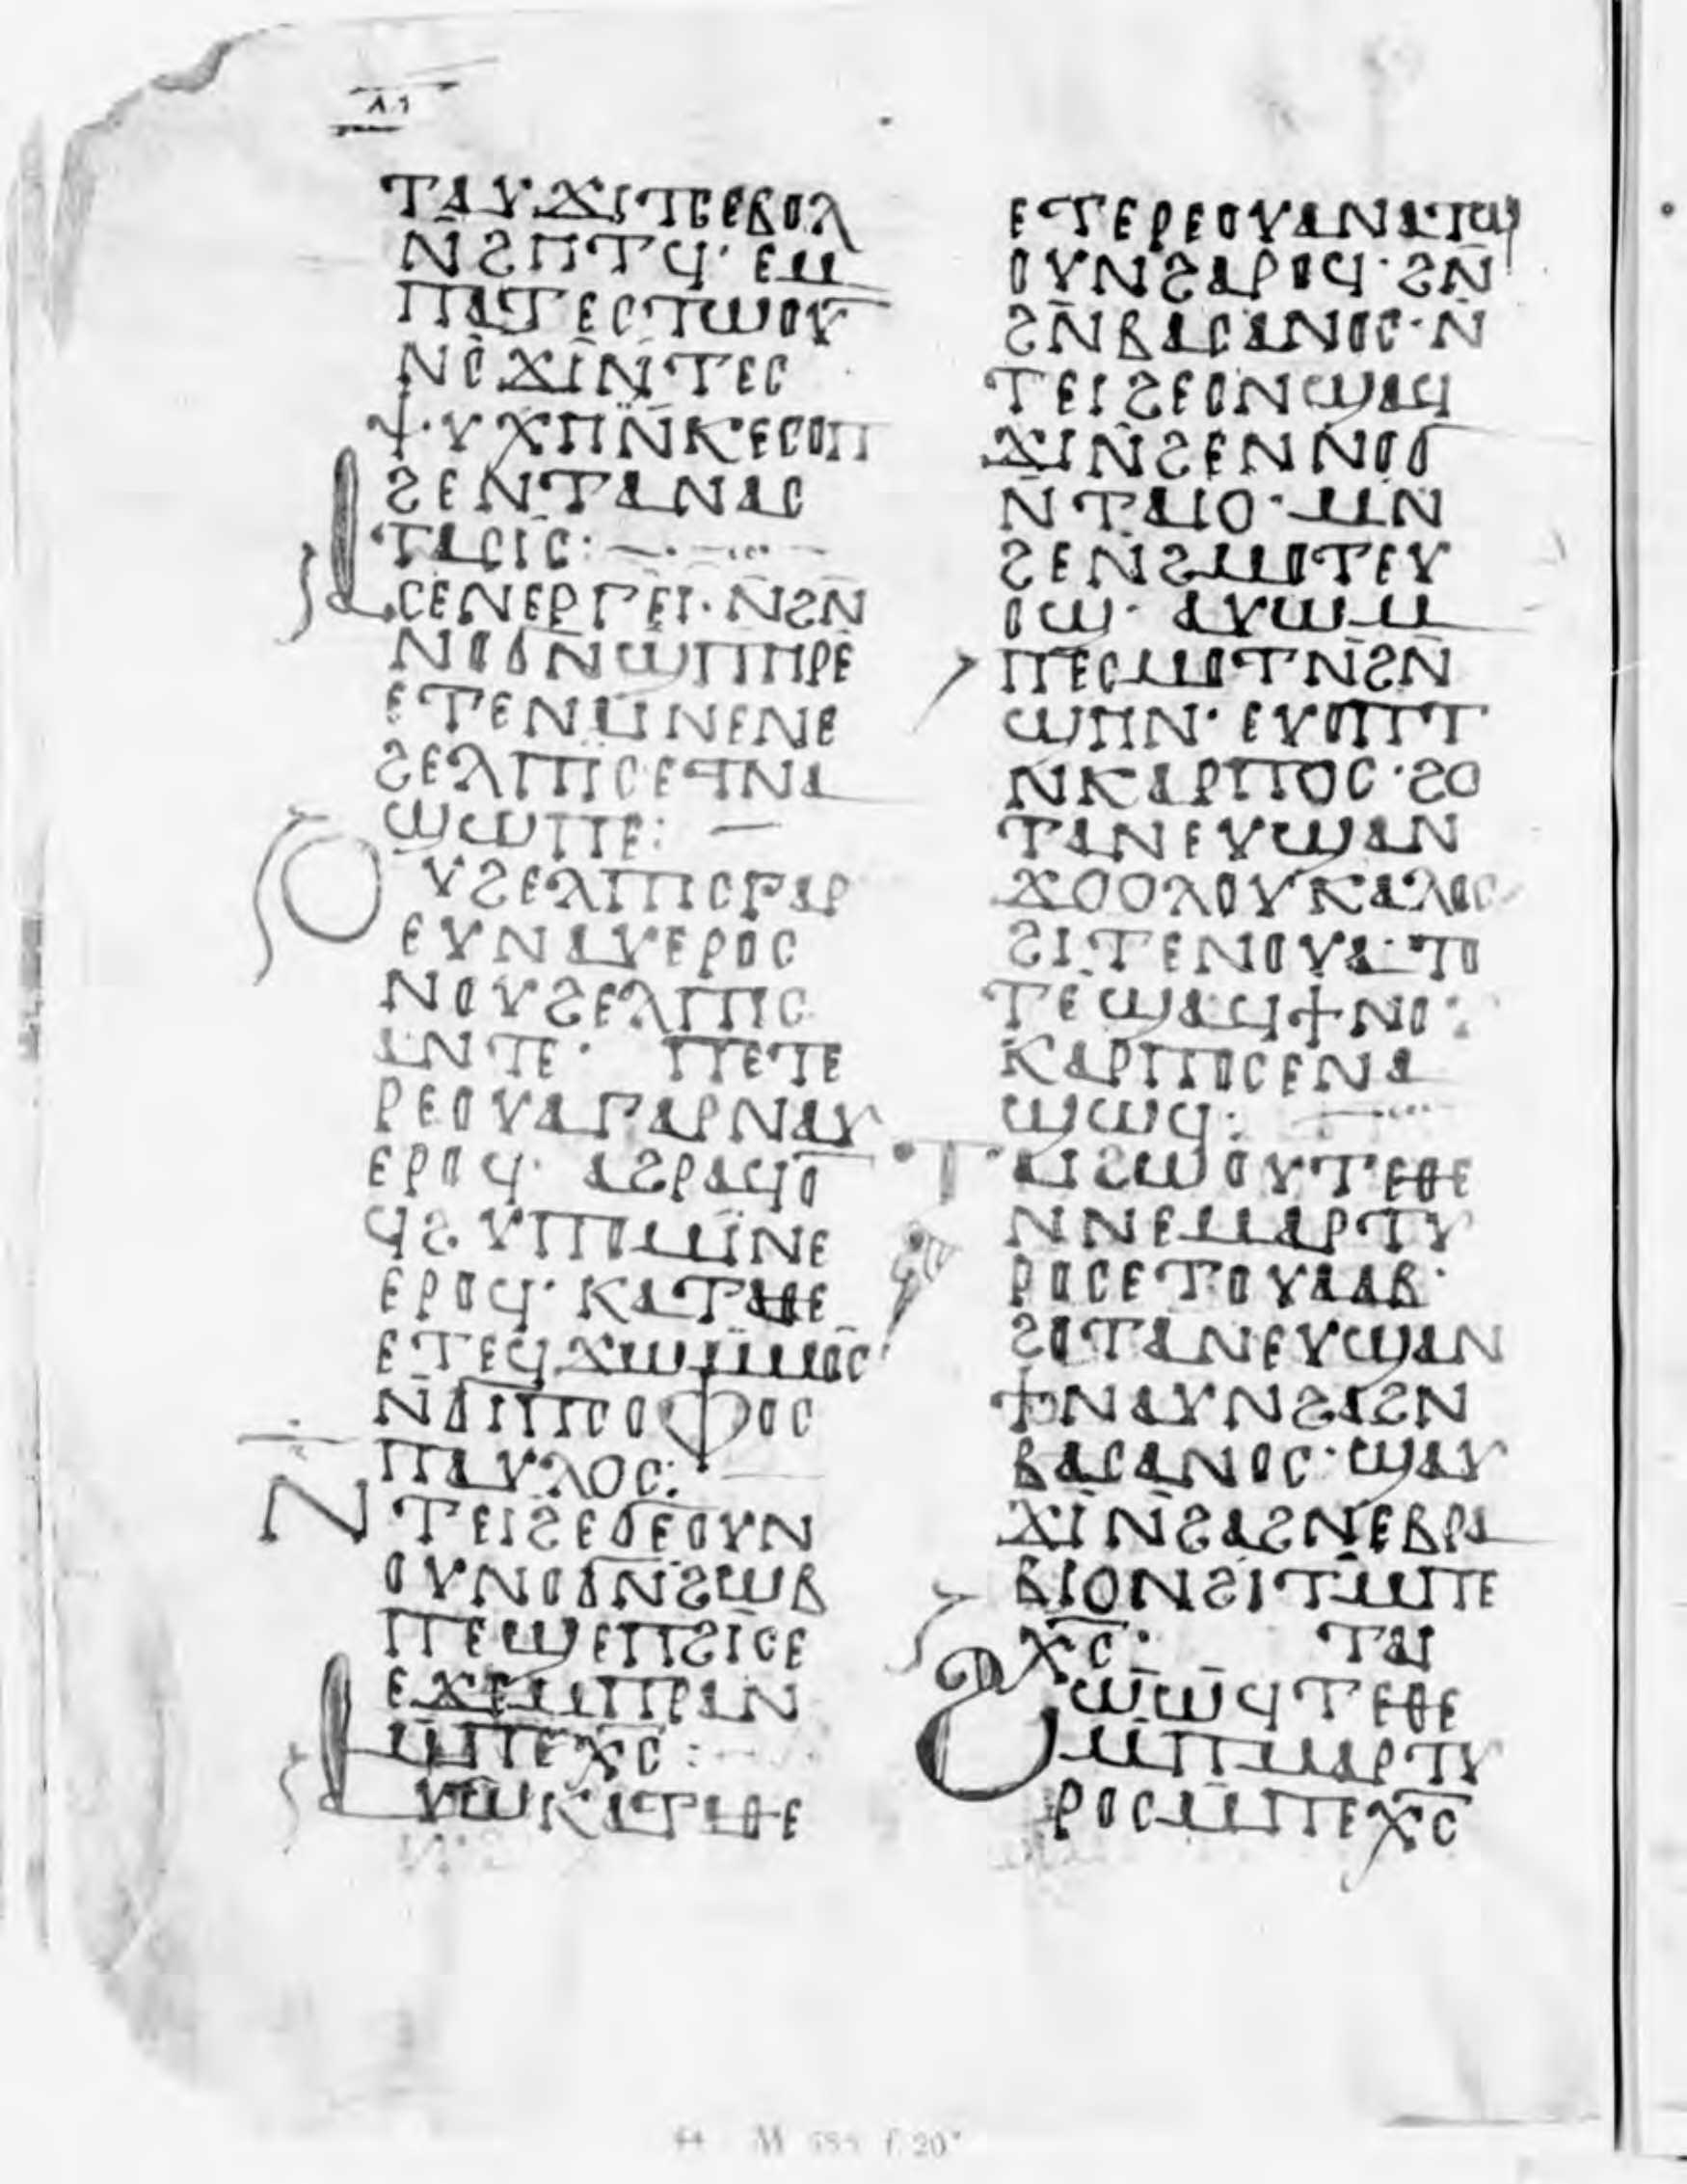 ⲧⲁⲩϫⲓⲧⲥⲉⲃⲟⲗ
ⲛ̄ϩⲏⲧϥ· ⲉⲙ
ⲡⲁⲧⲉⲥⲧⲱⲟⲩ
ⲛⲟ̄ϫⲓ̄ⲛ̄ⲧⲉⲥ
ϯ·ⲩⲭⲏⲛ̄ⲕⲉⲥⲟⲡ
ϩⲉⲛⲧⲁⲛⲁⲥ
ⲧⲁⲥⲓⲥ:
ⲁⲥⲉⲛⲉⲣⲅⲉⲓ· ⲛ̄ϩⲛ̄
ⲛⲟϭⲛ̄ϣⲡⲏⲣⲉ
ⲉⲧⲉⲛⲙⲛⲉⲛⲉ
ϩⲉⲗⲡⲓⲥⲉⲧⲛⲁ
ϣⲱⲡⲉ:
ⲟⲩϩⲉⲗⲡⲓⲥⲅⲁⲣ
ⲉⲩⲛⲁⲩⲉⲣⲟⲥ
ⲛⲟⲩϩⲉⲗⲡⲓⲥ
ⲁⲛⲧⲉ· ⲡⲉⲧⲉ
ⲣⲉⲟⲩⲁⲅⲁⲣⲛⲁⲩ
ⲉⲣⲟϥ· ⲁϩⲣⲁϥⲟ̄
ϥϩⲩⲡⲟⲙⲓ̈ⲛⲉ
ⲉⲣⲟϥ· ⲕⲁⲧⲁⲑⲉ
ⲉⲧⲉϥϫⲱⲙ̄ⲙⲟⲥ
ⲛ̄ϭⲓⲡⲥⲟⲫⲟⲥ
ⲡⲁⲩⲗⲟⲥ:
ⲛⲧⲉⲓϩⲉϭⲉⲟⲩⲛ
ⲟⲩⲛⲟϭⲛ̄ϩⲱⲃ
ⲡⲉϣⲉⲡϩⲓⲥⲉ
ⲉϫⲉⲙⲡⲣⲁⲛ
ⲙ̄ⲡⲉⲭ̄ⲥ̄:
ⲁⲩⲱⲕⲁⲧⲁⲑⲉ
ⲉⲧⲉⲣⲉⲟⲩⲁⲛⲁⲧⲱϣ
ⲟⲩⲛϩⲁⲣⲟϥ· ϩⲛ̄
ϩⲛ̄ⲃⲁⲥⲁⲛⲟⲥ· ⲛ̄
ⲧⲉⲓϩⲉⲟⲛϣⲁϥ
ϫⲓⲛ̄ϩⲉⲛⲛⲟϭ
ⲛ̄ⲧⲁⲓⲟ· ⲙⲛ
ϩⲉⲛϩⲙⲟⲧⲉⲩ
ⲟϣ· ⲁⲩⲱⲙ
ⲡⲉⲥⲙⲟⲧⲛ̄ϩⲛ̄
ϣⲏⲛ· ⲉⲩⲟⲧⲡ
ⲛⲕⲁⲣⲡⲟⲥ· ϩⲟ
ⲧⲁⲛⲉⲩϣⲁⲛ
ϫⲟⲟⲗⲟⲩⲕⲁⲗⲟⲥ
ϩⲓⲧⲉⲛⲟⲩⲁ· ⲧⲟ
ⲧⲉϣⲁϥϯⲛⲟ·
ⲕⲁⲣⲡⲟⲥⲉⲛⲁ
ϣⲱϥ:
ⲧⲁⲓϩⲱⲟⲩⲧⲉⲑⲉ
ⲛⲛⲉⲙⲁⲣⲧⲩ
ⲣⲟⲥⲉⲧⲟⲩⲁⲁⲃ·
ϩⲟⲧⲁⲛⲉⲩϣⲁⲛ
ϯⲛⲁⲩⲛϩⲁϩⲛ
ⲃⲁⲥⲁⲛⲟⲥ· ϣⲁⲩ
ϫⲓⲛ̄ϩⲁϩⲛⲉⲃⲣⲁ
ⲃⲓⲟⲛϩⲓⲧⲙⲡⲉ
ⲭ̄ⲥ̄· ⲧⲁⲓ
ϩⲱⲱϥⲧⲉⲑⲉ
ⲙ̄ⲡⲙⲁⲣⲧⲩ
ⲣⲟⲥⲙ̄ⲡⲉⲭ̄ⲥ̄